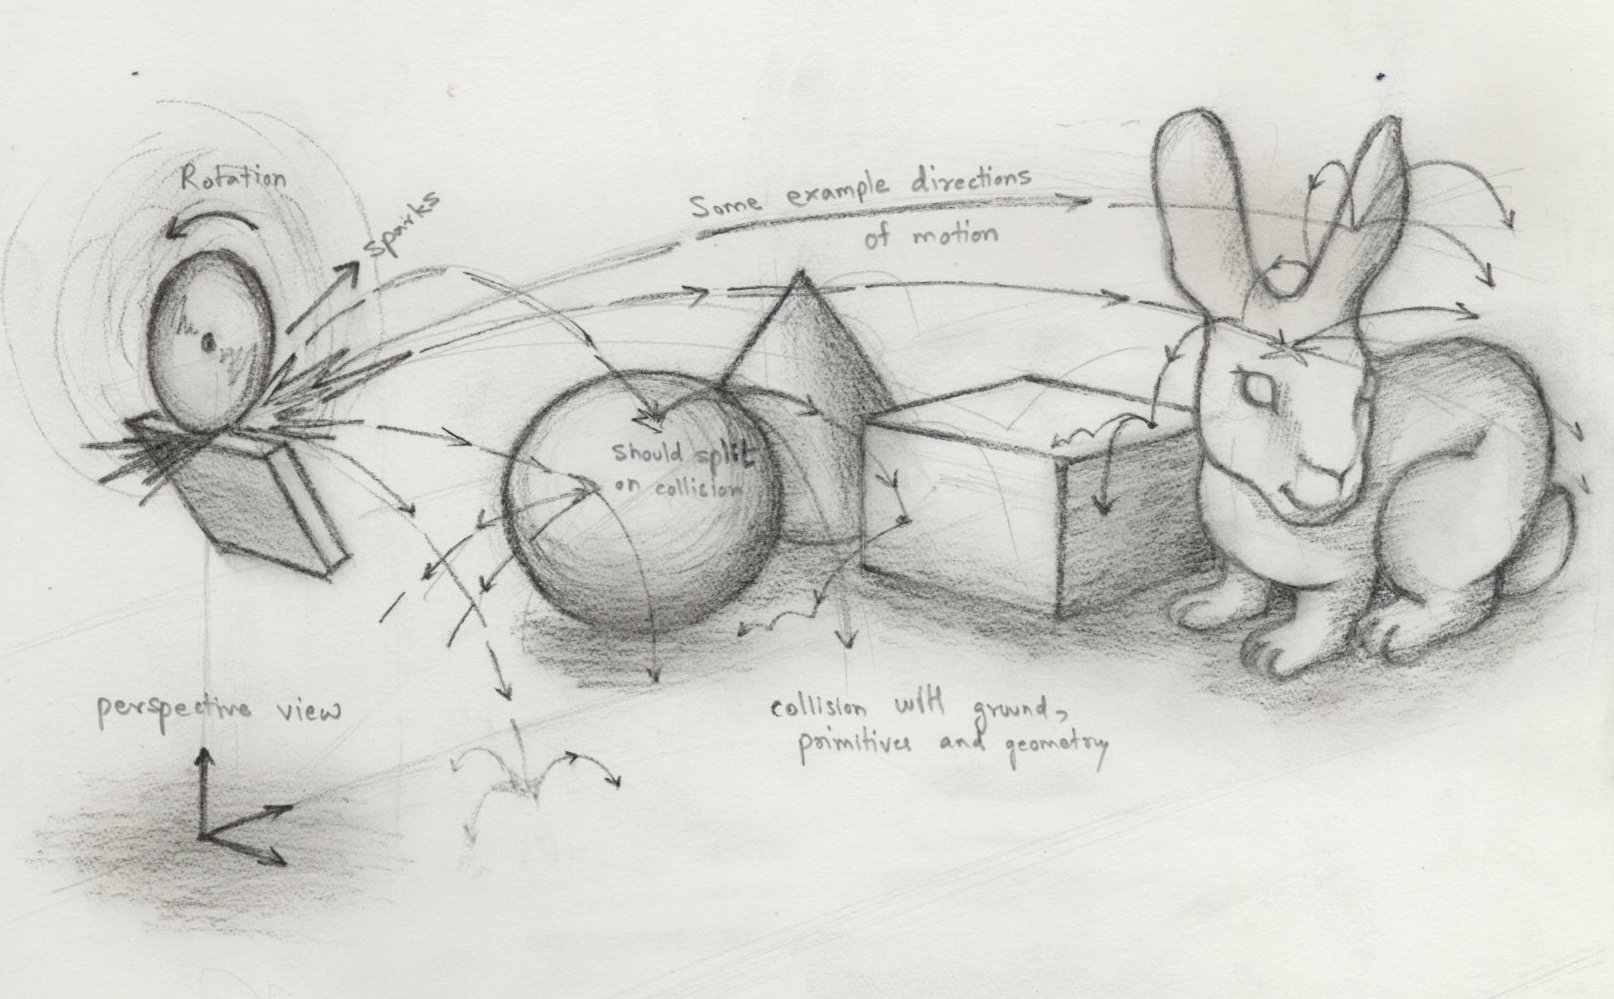 Rotation
sparks
Some example directions
of motion
should split
on collision
perspective view
collision with ground,
primitives and geometry